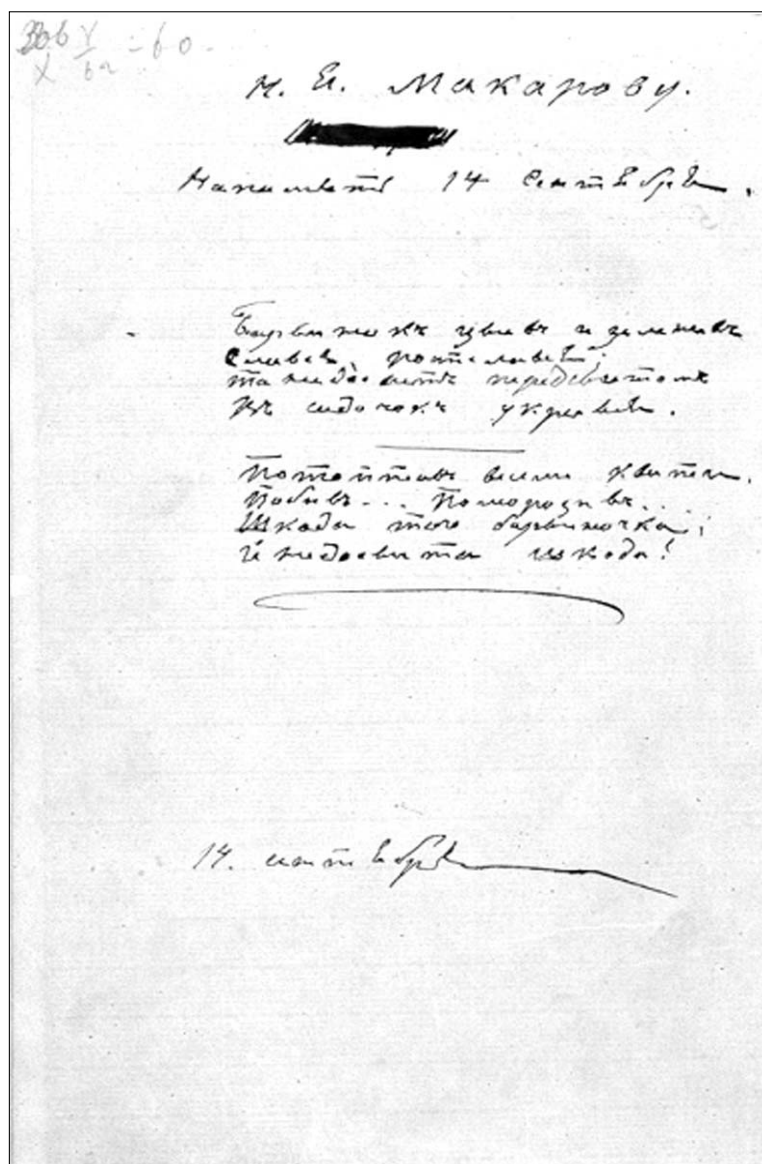 Н. Я. Макарову.
На память 14 Сентября.
Барвинокъ цвивъ и зеленивъ
Славсь, ростилавсь;
та недосвитъ передсвитомъ
въ садочокъ укравсь.
Потоптавъ весели квиты.
Побивъ... Поморозивъ..
Шкода того барвиночка;
Й недосвита шкода!
14. сентября